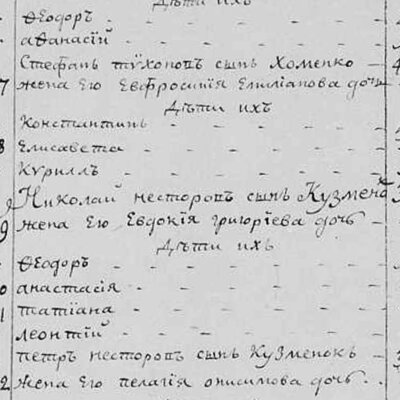 Дѣти ихъ
Ѳеодоръ
Аѳанасій
Стефанъ Тѵхоновъ сынъ Хоменко
7 жена Его Евфросинія Емиліанова дочь
Дѣти ихъ
Константинъ
8 Елисавета
Курилъ
Николай несторовъ сынъ Кузменко
9 жена Его Евдокія григоріева дочь
Дѣти ихъ
Ѳеодоръ
анастасія
татіана
леонтій
петръ несторовъ сынъ Кузменокъ
2 жена Его пелагія онисимова дочь